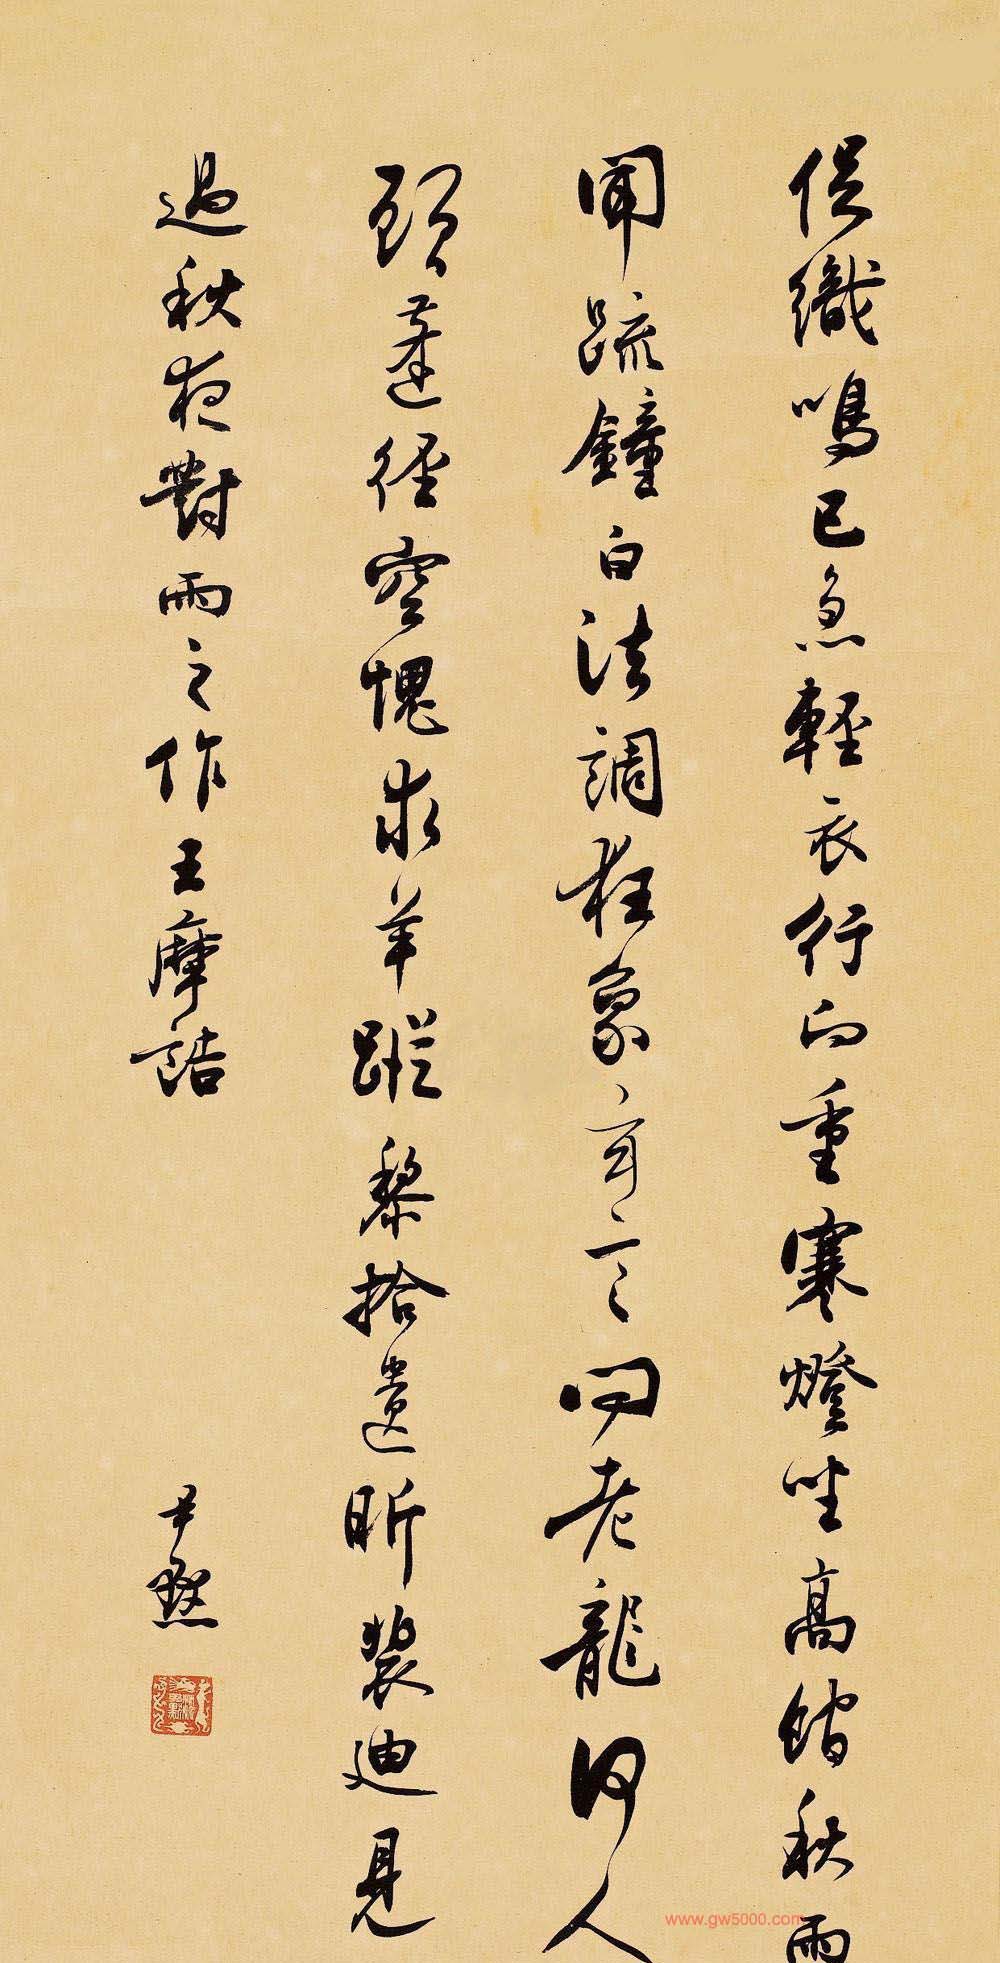 促織鳴已急輕衣行向重寒燈坐高館秋雨
聞疏鐘白法調狂象玄言問老龍何人
顧蓬徑空愧求羊蹤黎拾遺昕裴迪見
過秋夜對雨之作王摩詰
尹默
www.gw5000.com